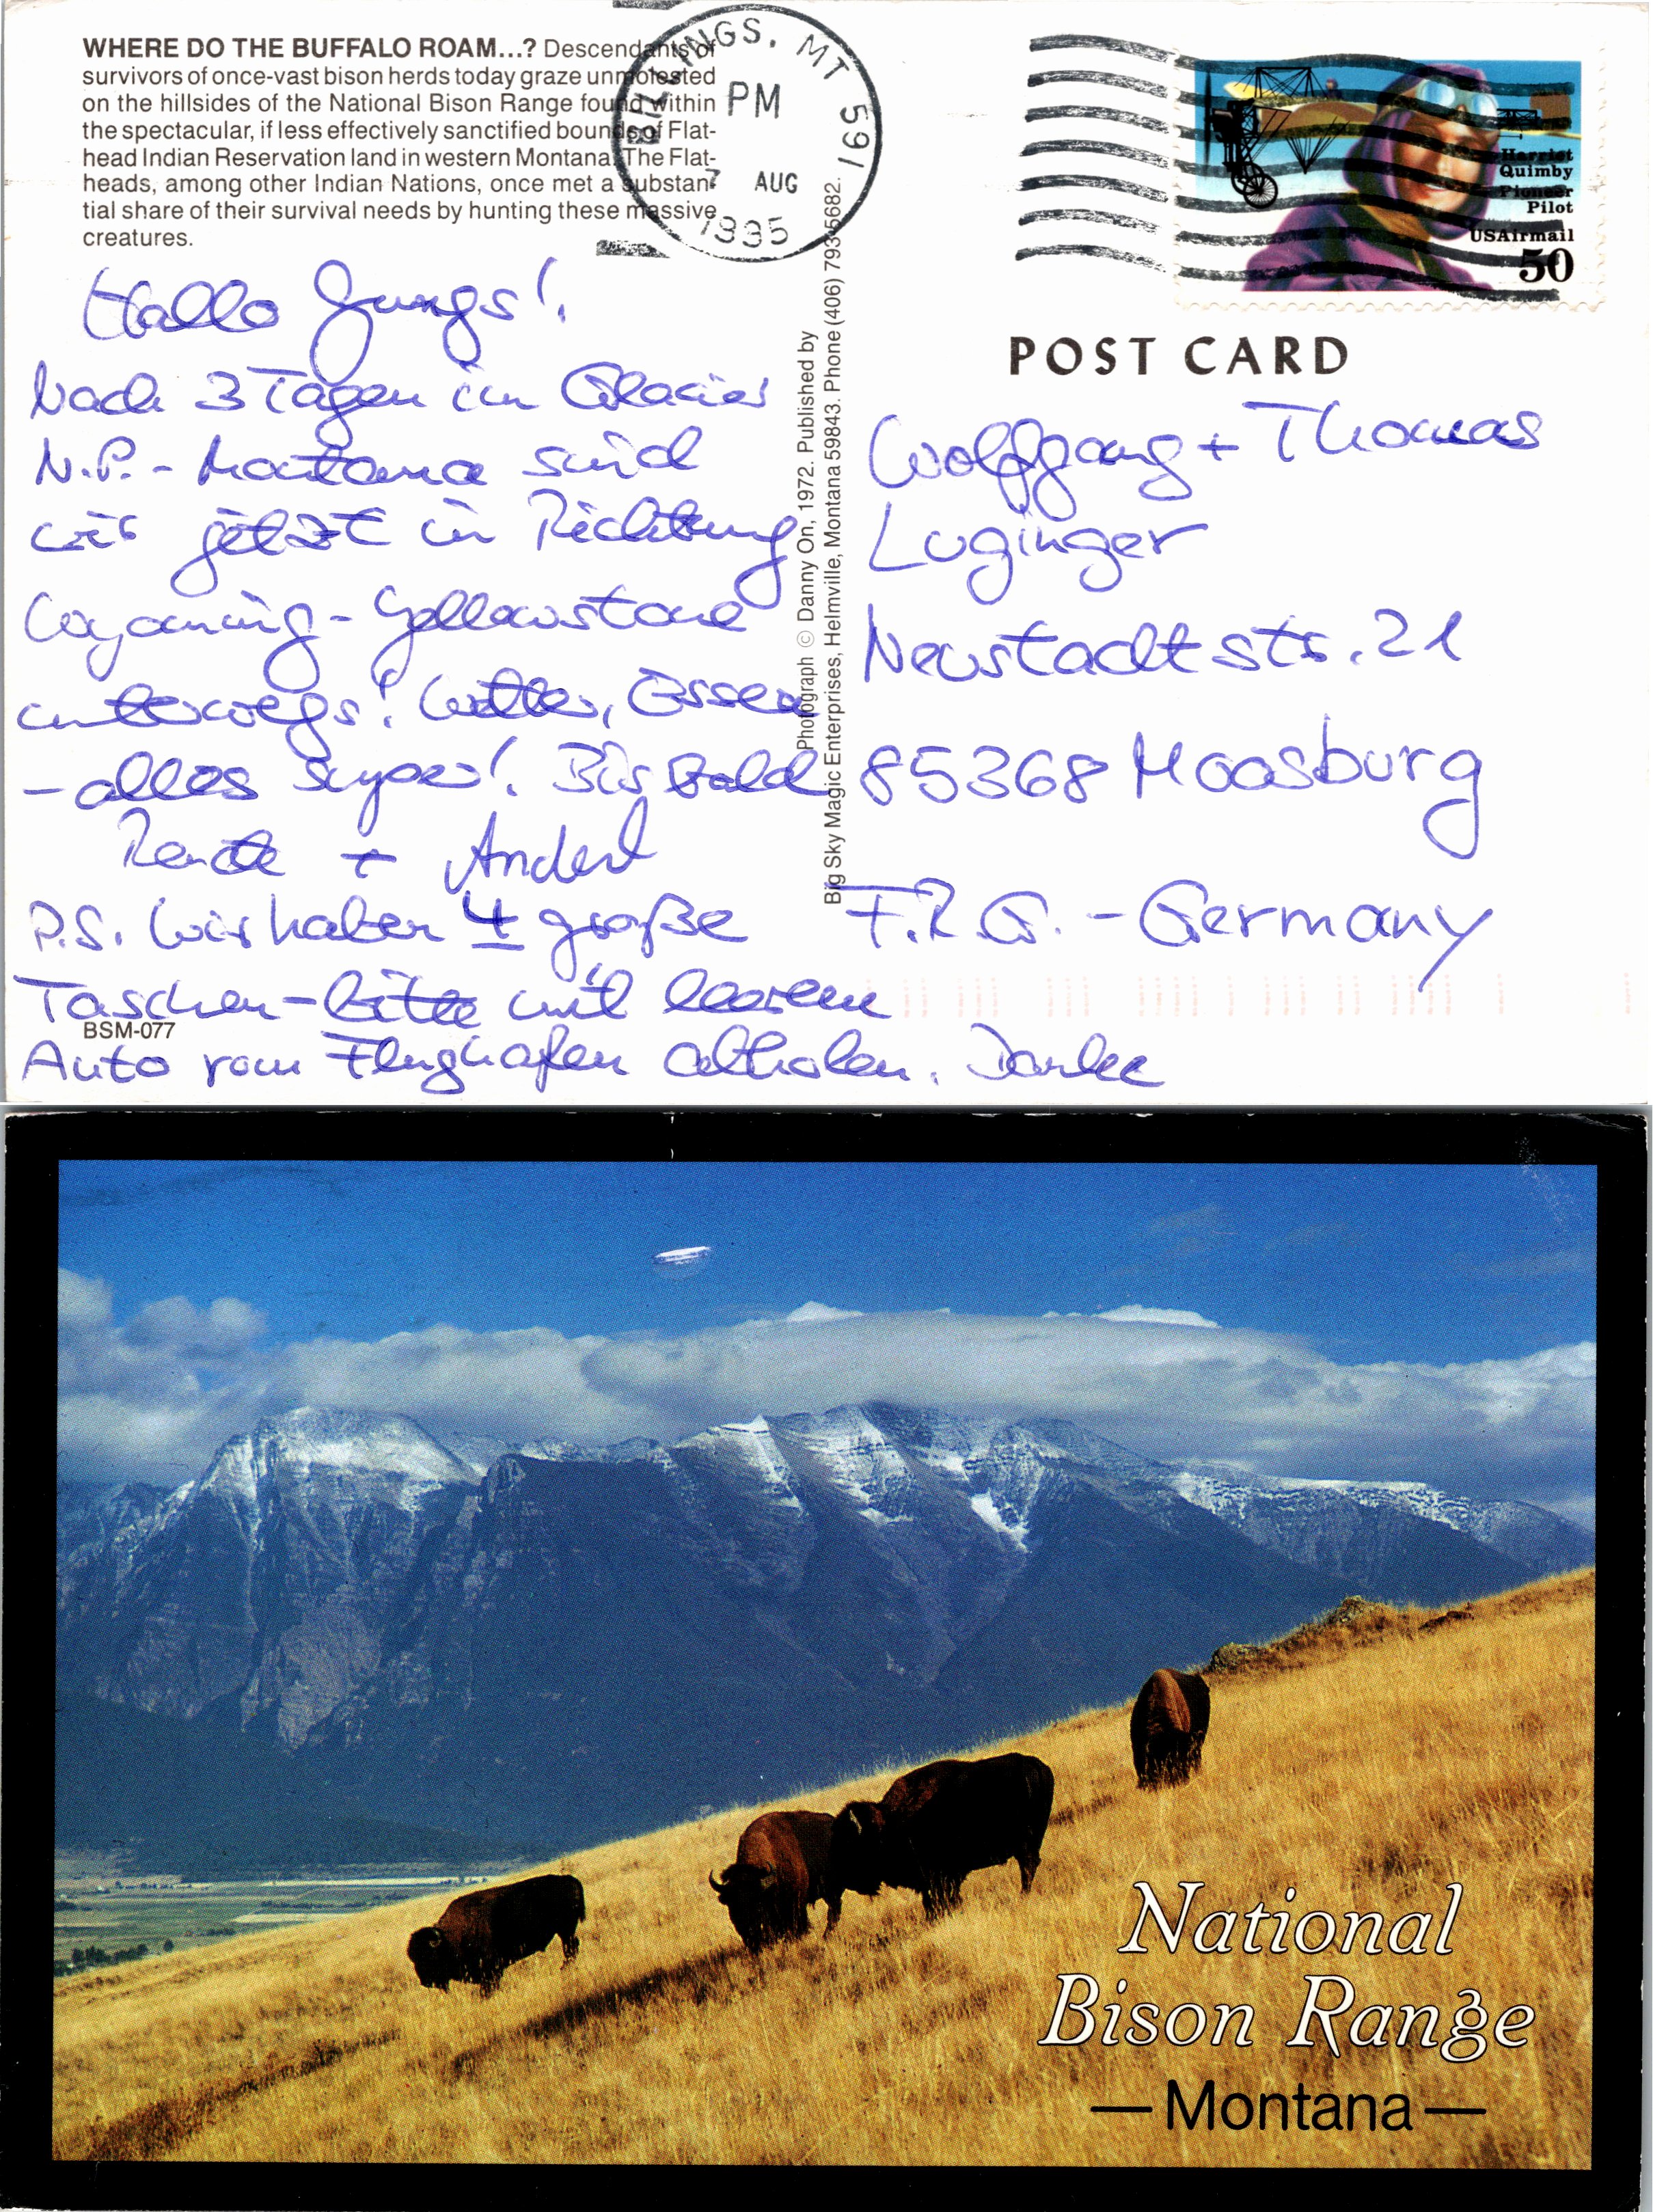 WHERE DO THE BUFFALO ROAM...? Descendants of
survivors of once-vast bison herds today graze unmolested
on the hillsides of the National Bison Range found within
the spectacular, if less effectively sanctified bounds of Flat-
head Indian Reservation land in western Montana. The Flat-
heads, among other Indian Nations, once met a substan-
tial share of their survival needs by hunting these massive
creatures.
BILLINGS, MT 591
PM
7 AUG
1995
Harriet
Quimby
Pioneer
Pilot
USAirmail
50
POST CARD
Hallo Jungs!
Nach 3 Tagen im Glacier
N.P. - Montana sind
wir jetzt in Richtung
Wyoming - Yellowstone
unterwegs! Wetter, Essen
- alles super! Bis Bald
Renate + Anderl
P.S. Wir haben 4 große
Taschen - bitte mit leerem
Auto vom Flughafen abholen. Danke
BSM-077
Photograph © Danny On, 1972. Published by
Big Sky Magic Enterprises, Helmville, Montana 59843. Phone (406) 793-5682.
Wolfgang + Thomas
Luginger
Neustadtstr. 21
85368 Moosburg
F.R.G. - Germany
National
Bison Range
— Montana —